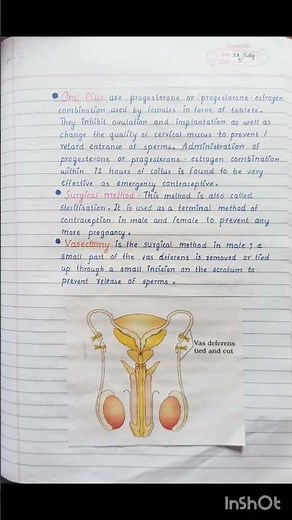 • Oral Pills are progesterone or progesterone-estrogen
combination used by females in form of tablets.
They inhibit ovulation and implantation as well as
change the quality of cervical mucus to prevent /
retard entrance of sperms. Administration of
progesterone or progesterone-estrogen combination
within 72 hours of coitus is found to be very
effective as emergency contraceptive.
• Surgical method - This method is also called
sterilisation. It is used as a terminal method of
contraception in male and female to prevent any
more pregnancy.
• Vasectomy is the surgical method in male ; a
small part of the vas deferens is removed or tied
up through a small incision on the scrotum to
prevent release of sperms.
Vas deferens
tied and cut
InShot